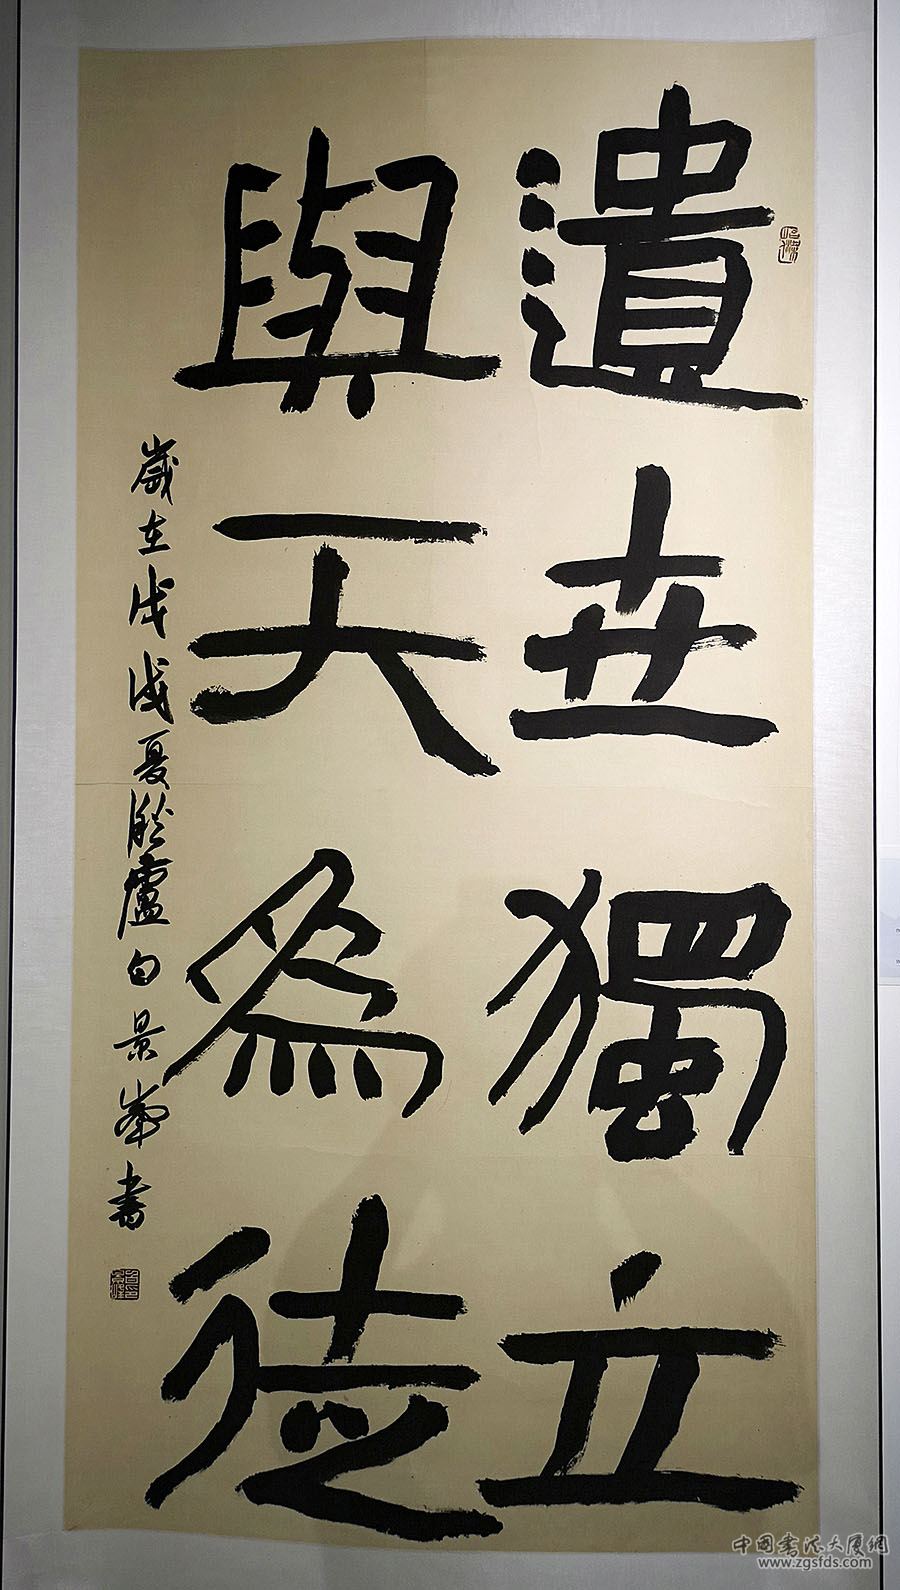 遺世獨立
與天為徒
歲在戊戌夏於廬白景峯書
中国书法大厦网
www.zgsfds.com